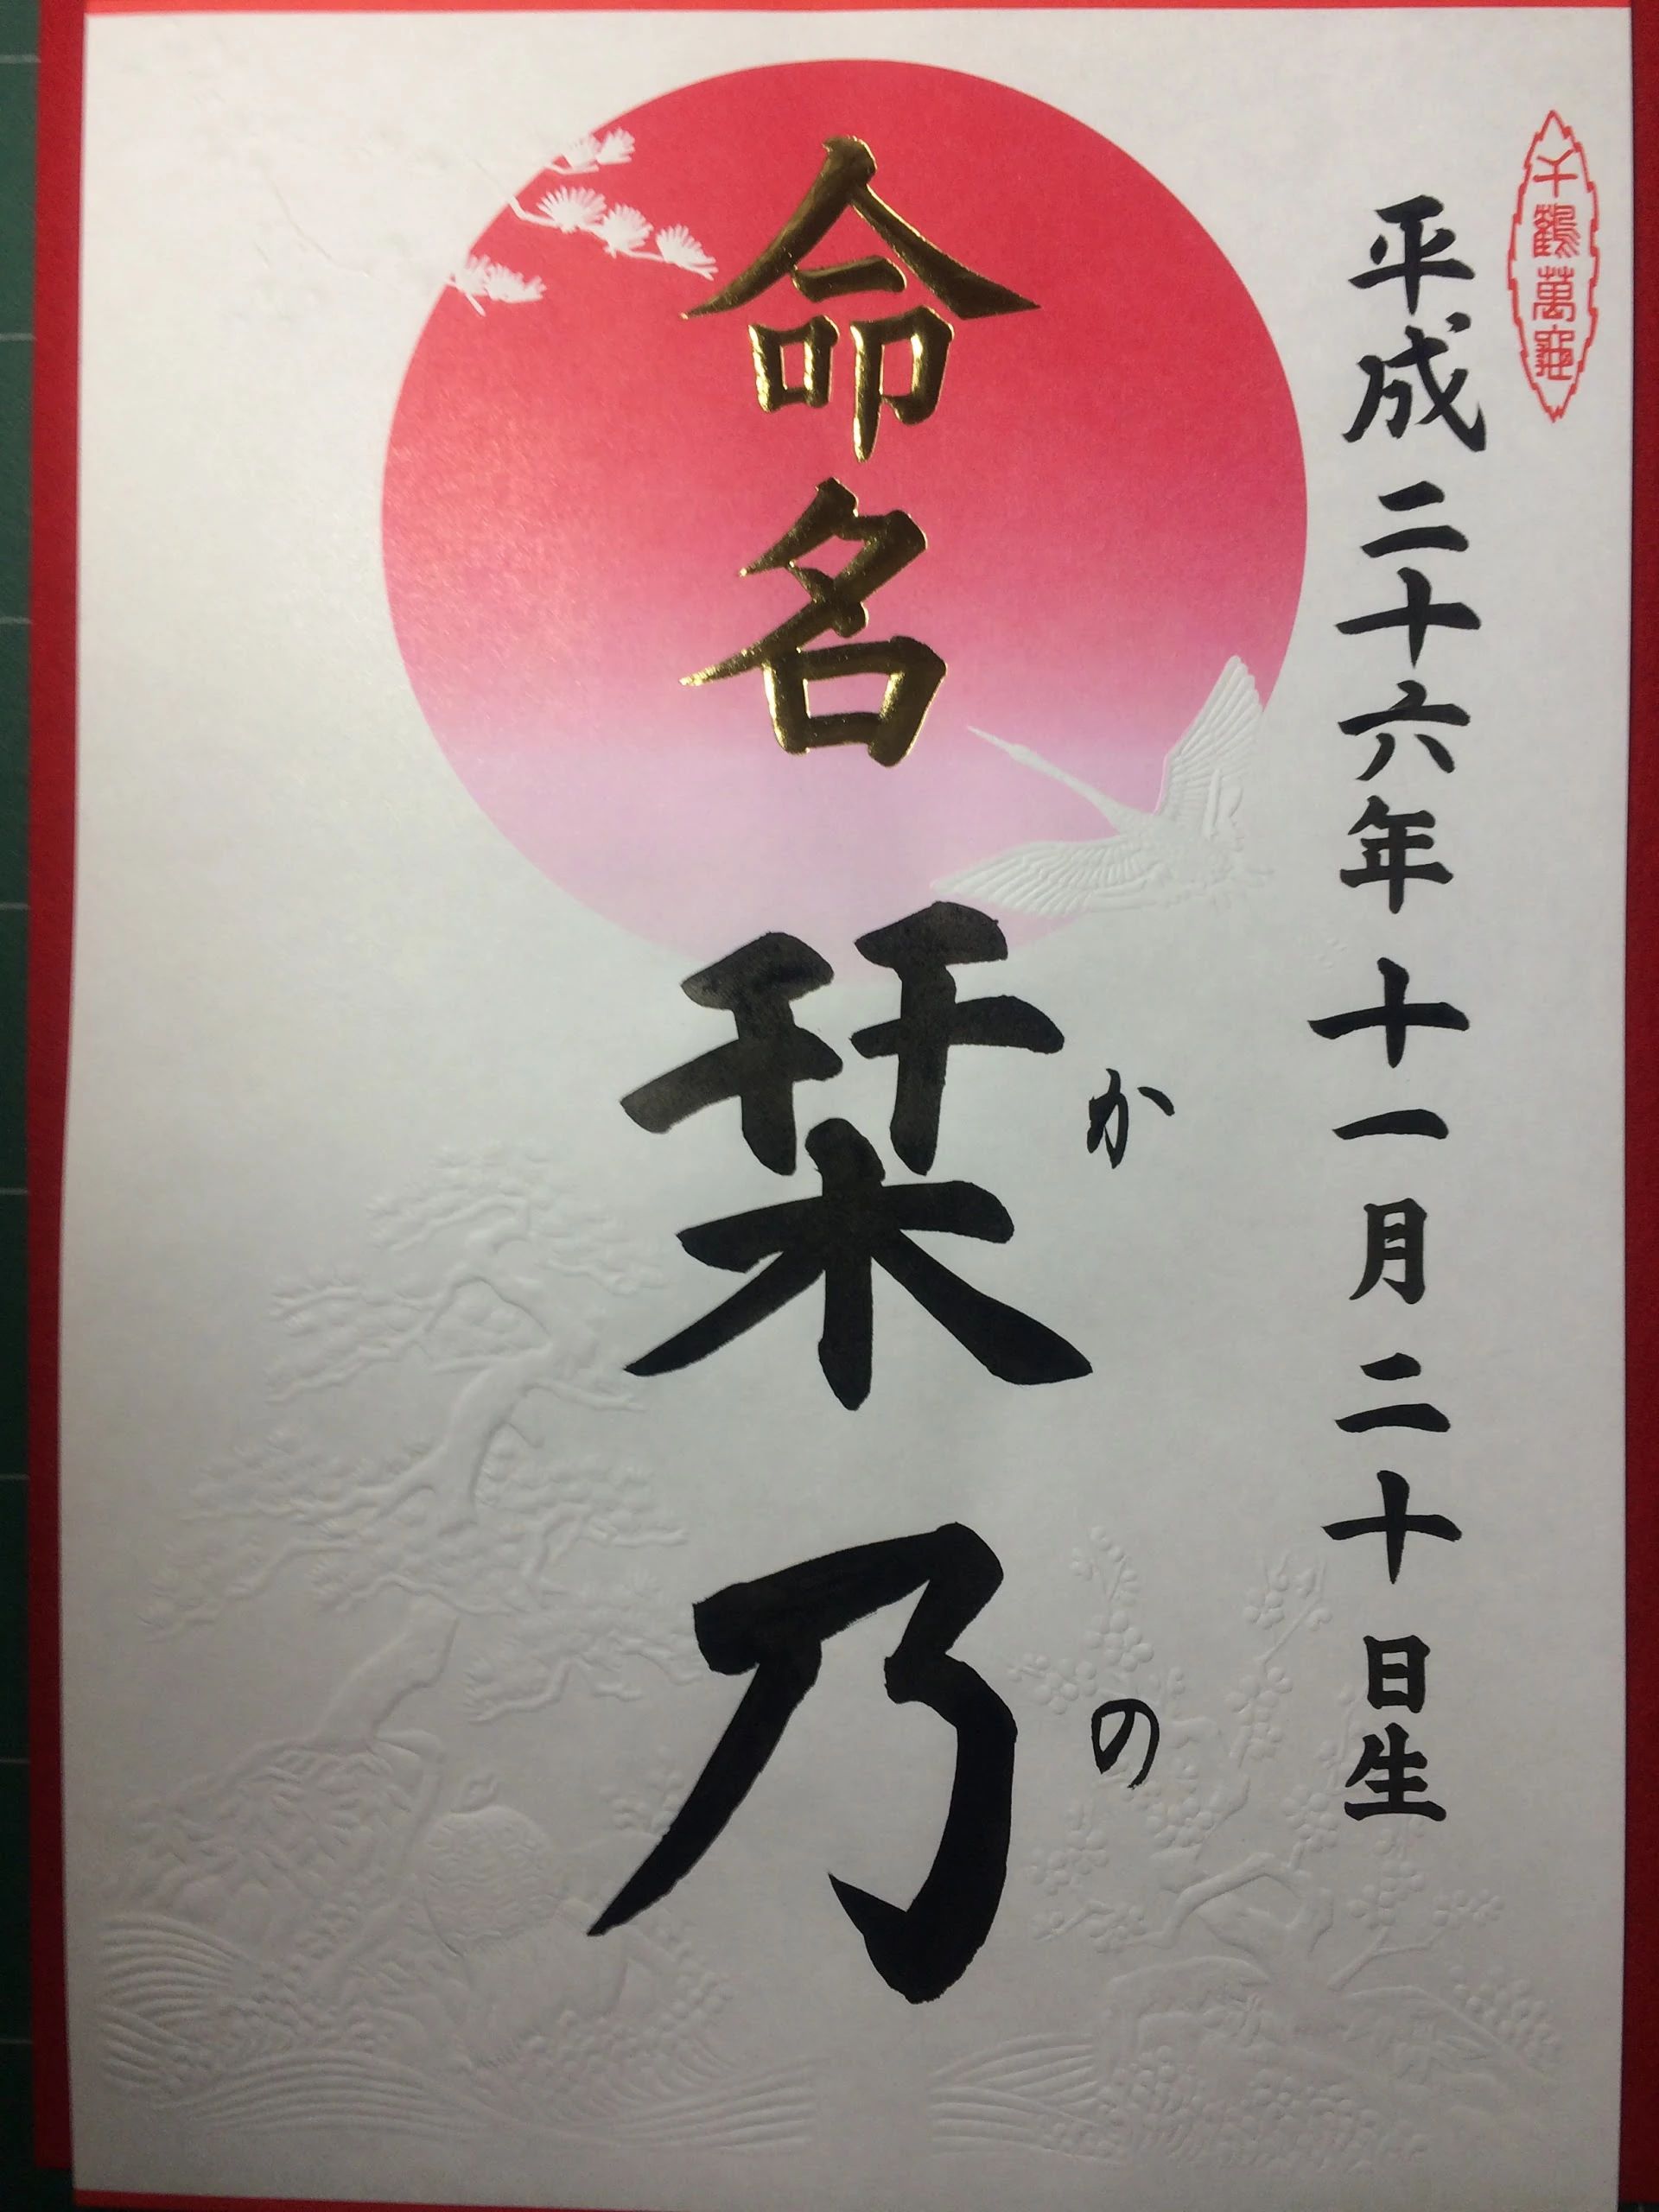 千鶴萬亀
平成二十六年十一月二十日生
命名 栞乃
かの